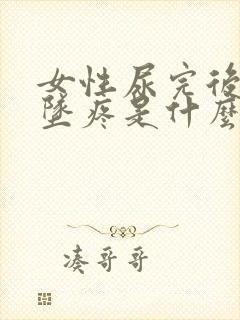 女性尿完後
墜疼是什麼
凑哥哥